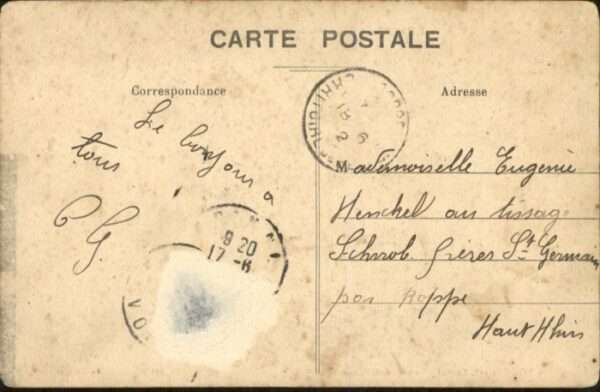 CARTE POSTALE
Correspondance
Adresse
Le bonjour a
tous
P G.
8 20
17 -6
VO
Mademoiselle Eugenie
Henckel au tissage
Schwob frères St Germain
par Roppe
Haut Rhin